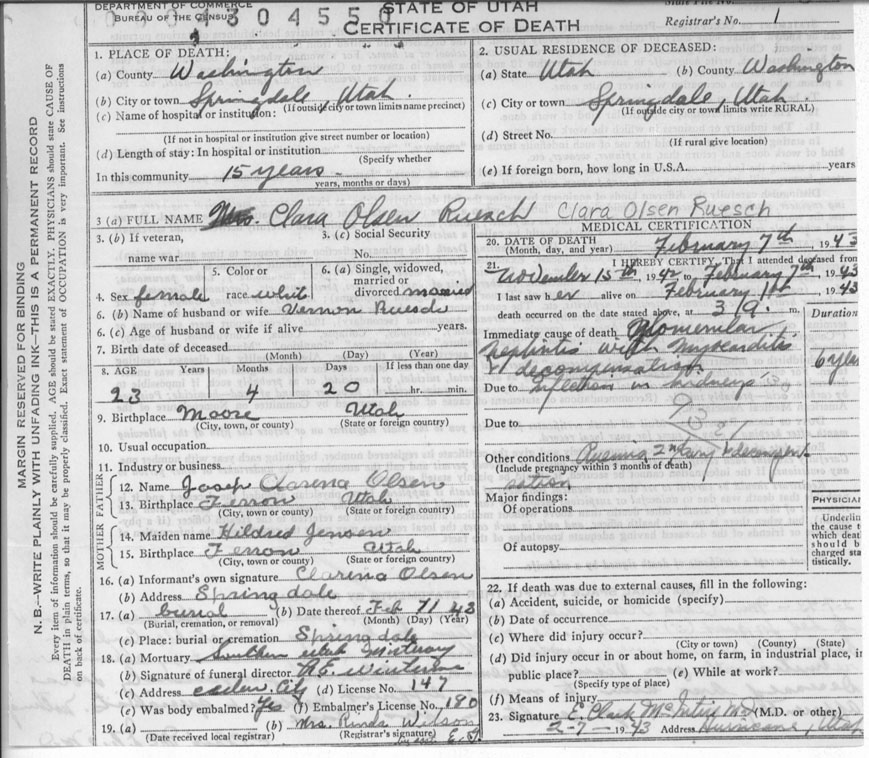 DEPARTMENT OF COMMERCE
BUREAU OF THE CENSUS
0304550
STATE OF UTAH
CERTIFICATE OF DEATH
Registrar's No. 1
MARGIN RESERVED FOR BINDING
N. B.—WRITE PLAINLY WITH UNFADING INK—THIS IS A PERMANENT RECORD
Every item of information should be carefully supplied. AGE should be stated EXACTLY. PHYSICIANS should state CAUSE OF
DEATH in plain terms, so that it may be properly classified. Exact statement of OCCUPATION is very important. See instructions
on back of certificate.
1. PLACE OF DEATH:
(a) County Washington
(b) City or town Springdale, Utah.
(If outside city or town limits name precinct)
(c) Name of hospital or institution:
(If not in hospital or institution give street number or location)
(d) Length of stay: In hospital or institution
(Specify whether
In this community 15 years
years, months or days)
2. USUAL RESIDENCE OF DECEASED:
(a) State Utah (b) County Washington
(c) City or town Springdale, Utah
(If outside city or town limits write RURAL)
(d) Street No.
(If rural give location)
(e) If foreign born, how long in U.S.A. years
3 (a) FULL NAME Mrs. Clara Olsen Ruesch Clara Olsen Ruesch
3. (b) If veteran,
name war
3. (c) Social Security
No.
4. Sex female
5. Color or
race white
6. (a) Single, widowed,
married or
divorced married
6. (b) Name of husband or wife Vernon Ruesch
6. (c) Age of husband or wife if alive years.
7. Birth date of deceased
(Month) (Day) (Year)
8. AGE Years Months Days If less than one day
23 4 20 hr. min.
9. Birthplace Moore Utah
(City, town, or county) (State or foreign country)
10. Usual occupation
11. Industry or business
FATHER
12. Name Joseph Clarence Olsen
13. Birthplace Ferron Utah
(City, town or county) (State or foreign country)
MOTHER
14. Maiden name Hildred Jensen
15. Birthplace Ferron Utah
(City, town or county) (State or foreign country)
16. (a) Informant's own signature Clarence Olsen
(b) Address Springdale
17. (a) burial (b) Date thereof Feb 71 43
(Burial, cremation, or removal) (Month) (Day) (Year)
(c) Place: burial or cremation Springdale
18. (a) Mortuary Southern Utah Mortuary
(b) Signature of funeral director
(c) Address Cedar City (d) License No. 147
(e) Was body embalmed? Yes (f) Embalmer's License No. 180
19. (a) (b) Mrs. Rinda Wilson
(Date received local registrar) (Registrar's signature)
MEDICAL CERTIFICATION
20. DATE OF DEATH
(Month, day, and year) February 7th, 1943
21. I HEREBY CERTIFY, That I attended deceased from
November 15th, 1942 to February 7th, 1943
I last saw her alive on February 1st, 1943
death occurred on the date stated above, at m.
Duration
Immediate cause of death Glomerular
nephritis with myocarditis
decompensation
6 years
Due to infection in kidneys
Due to
Other conditions
(Include pregnancy within 3 months of death)
Major findings:
Of operations
Of autopsy
PHYSICIAN
Underline
the cause t
which death
should b
charged sta
tistically.
22. If death was due to external causes, fill in the following:
(a) Accident, suicide, or homicide (specify)
(b) Date of occurrence
(c) Where did injury occur?
(City or town) (County) (State)
(d) Did injury occur in or about home, on farm, in industrial place, in
public place? (e) While at work?
(Specify type of place)
(f) Means of injury
23. Signature E. Clark McIntire MD (M.D. or other)
2-7-1943 Address Hurricane, Utah